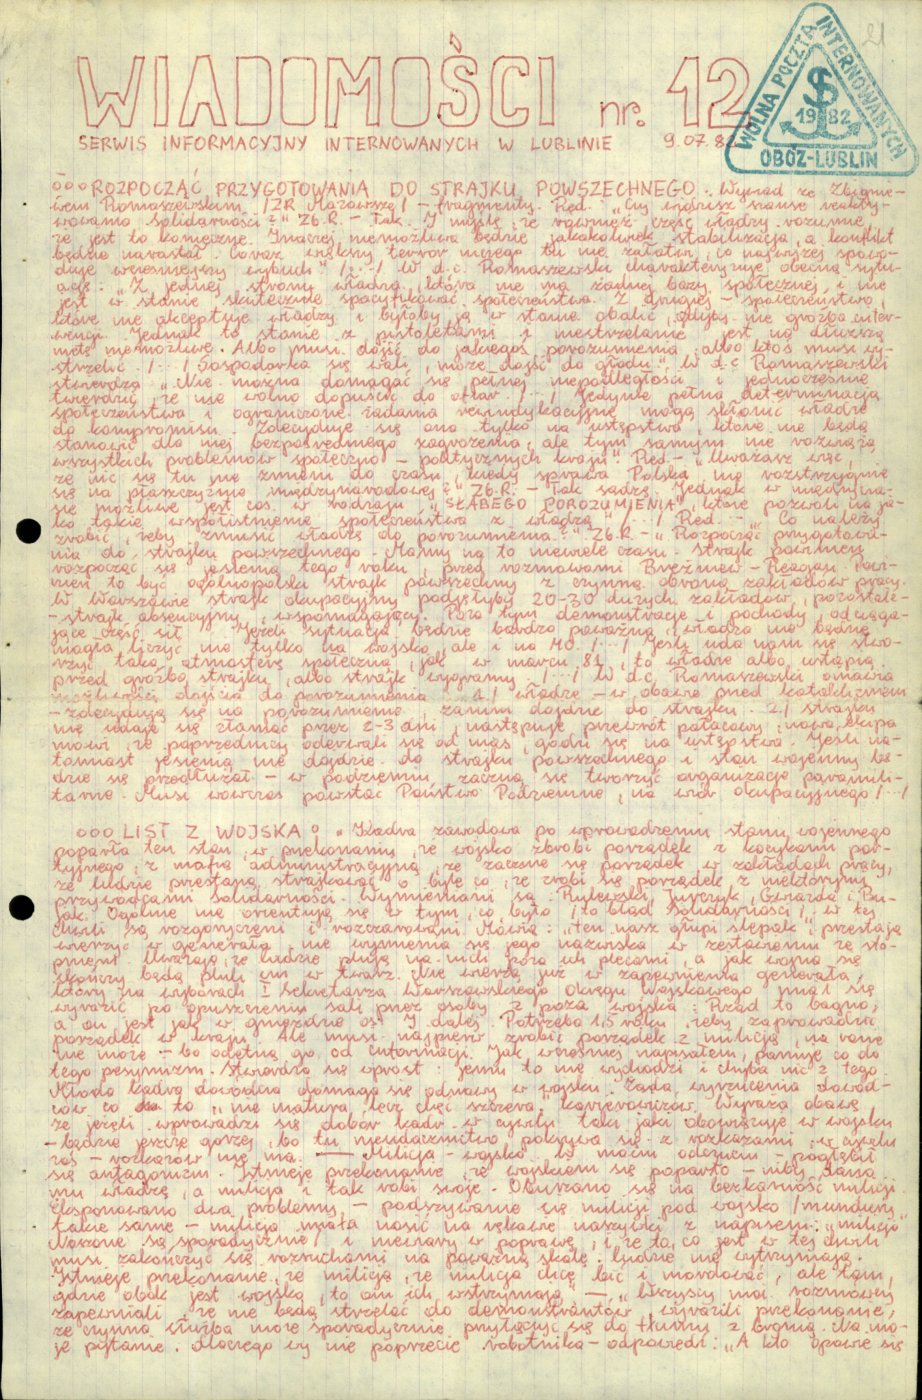 WIADOMOŚCI nr. 12
SERWIS INFORMACYJNY INTERNOWANYCH W LUBLINIE 9.07.82
WOLNA POCZTA INTERNOWANYCH
1982
OBÓZ-LUBLIN
21
ooo ROZPOCZĄĆ PRZYGOTOWANIA DO STRAJKU POWSZECHNEGO. Wywiad ze Zbignie-
wem Romaszewskim /ZR Mazowsze/ - fragmenty. Red. "Czy widzisz szanse reakty-
wowania Solidarności?" Zb.R. - Tak. I myślę, że również część władzy rozumie,
że jest to konieczne. Inaczej niemożliwa będzie jakakolwiek stabilizacja, a konflikt
będzie narastał. Coraz większy terror niczego tu nie załatwi, co najwyżej spowo-
duje wcześniejszy wybuch" /.../ W d.c. Romaszewski charakteryzuje obecną sytu-
ację: "Z jednej strony władza, która nie ma żadnej bazy społecznej i nie
jest w stanie skutecznie spacyfikować społeczeństwa. Z drugiej - społeczeństwo,
które nie akceptuje władzy i byłoby ją w stanie obalić, gdyby nie groźba inter-
wencji. Jednak to stanie z pistoletami i niestrzelanie jest na dłuższą
metę niemożliwe. Albo musi dojść do jakiegoś porozumienia, albo ktoś musi wy-
strzelić. /.../ Gospodarka się wali, może dojść do głodu". W d.c. Romaszewski
stwierdza "Nie można domagać się pełnej niepodległości i jednocześnie
twierdzić, że nie wolno dopuścić do ofiar. /.../ Jedynie pełna determinacja
społeczeństwa i ograniczone żądania rewindykacyjne mogą skłonić władzę
do kompromisu. Zdecyduje się ona tylko na ustępstwa, które nie będą
stanowić dla niej bezpośredniego zagrożenia, ale tym samym nie rozwiążą
wszystkich problemów społeczno - politycznych kraju" Red. - "Uważasz więc,
że nic się tu nie zmieni do czasu, kiedy sprawa Polski nie rozstrzygnie
się na płaszczyźnie międzynarodowej?" Zb.R. - Tak sądzę. Jednak w
się możliwe jest coś w rodzaju "SŁABEGO POROZUMIENIA", które pozwoli na ja-
ko takie współistnienie społeczeństwa z władzą" /.../ Red. - "Co należy
zrobić, żeby zmusić władzę do porozumienia?" Zb.R. - "Rozpocząć przygotowa-
nia do strajku powszechnego. Mamy na to niewiele czasu. Strajk powinien
rozpocząć się jesienią tego roku, przed rozmowami Breżniew - Reagan. Powi-
nien to być ogólnopolski strajk powszechny z czynną obroną zakładów pracy.
W Warszawie strajk okupacyjny podjęłyby 20-30 dużych zakładów, pozostałe
- strajk absencyjny, wspomagający. Poza tym demonstracje i pochody, odciąga-
jące część sił. Jeżeli sytuacja będzie bardzo poważna, władza nie będzie
mogła liczyć nie tylko na wojsko, ale i na MO. /.../ Jeśli uda nam się stwo-
rzyć taką atmosferę społeczną, jak w marcu 81, to władze albo ustąpią
przed groźbą strajku, albo strajk wygramy. /.../ W d.c. Romaszewski omawia
możliwości dojścia do porozumienia 1/ władze - w obawie przed kataklizmem
- zdecydują się na porozumienie zanim dojdzie do strajku. 2/ strajku
nie udaje się złamać przez 2-3 dni, następuje przewrót pałacowy, nowa ekipa
mówi, że poprzednicy oderwali się od mas, godzi się na ustępstwa. Jeśli na-
tomiast jesienią nie dojdzie do strajku powszechnego i stan wojenny bę-
dzie się przedłużał - w podziemiu zaczną się tworzyć organizacje paramili-
tarne. Musi wówczas powstać Państwo Podziemne, na wzór okupacyjnego /.../
ooo LIST Z WOJSKA: "Kadra zawodowa po wprowadzeniu stanu wojennego
poparła ten stan w przekonaniu, że wojsko zrobi porządek z kacykami par-
tyjnymi, z mafią administracyjną, że zacznie się porządek w zakładach pracy,
że ludzie przestaną strajkować o byle co, że zrobi się porządek z niektórymi
przywódcami Solidarności. Wymieniani są: Rulewski, Jurczyk, Gwiazda i Bu-
jak. Ogólnie nie orientują się w tym, co było /to błąd Solidarności/, w tej
chwili są rozgoryczeni i rozczarowani. Mówią: "ten nasz głupi ślepak", przestają
wierzyć w generała, nie wymienia się jego nazwiska w zestawieniu ze sto-
pniem. Uważają, że ludzie plują na nich poza ich plecami, a jak wojna się
skończy będą pluli im w twarz. Nie wierzą już w zapewnienia generała,
który na wyborach I Sekretarza Warszawskiego Okręgu Wojskowego miał się
wyrazić po opuszczeniu sali przez osoby z poza wojska: Rząd to bagno,
a on jest jak w gnieździe os. I dalej. Potrzeba 1,5 roku, żeby zaprowadzić
porządek w kraju. Ale musi najpierw zrobić porządek z milicją, na razie
nie może - bo odetną go od informacji. Jak wcześniej napisałem, panuje co do
tego pesymizm. Stwierdza się wprost: jemu to nie wychodzi i chyba nic z tego.
Młoda kadra dowódcza domaga się odnowy w wojsku. Żąda wyrzucenia dowód-
ców co to "nie matura, lecz chęć szczera", karierowiczów. Wyraża obawę
że jeżeli wprowadzi się dobór kadr w cywilu taki jaki obowiązuje w wojsku
- będzie jeszcze gorzej, bo tu nieudacznictwo pokrywa się z rozkazami, w cywilu
zaś - rozkazów nie ma. — Milicja - wojsko. W moim odczuciu - pogłębił
się antagonizm. Istnieje przekonanie, że wojskiem się poparto - niby dano
mu władzę, a milicja i tak robi swoje. Oburzano się na bezkarność milicji.
Eksponowano dwa problemy - podszywanie się milicji pod wojsko /mundury
takie same - milicja miała nosić na rękawie naszywki z napisem: "milicja"
Noszone są sporadycznie/ i niewiary w poprawę, i że to, co jest w tej chwili
musi zakończyć się rozruchami na poważną skalę. Ludzie nie wytrzymają.
Istnieje przekonanie, że milicja, że milicja chce bić i mordować, ale tam,
gdzie obok jest wojsko, to oni ich wstrzymają. — "Wszyscy moi rozmówcy
zapewniali, że nie będą strzelać do demonstrantów, wyrazili przekonanie,
że czynna służba może sporadycznie przyłączyć się do tłumu z bronią. Na mo-
je pytanie: dlaczego wy nie poprzecie robotnika - odpowiedź: "A kto oprawie się